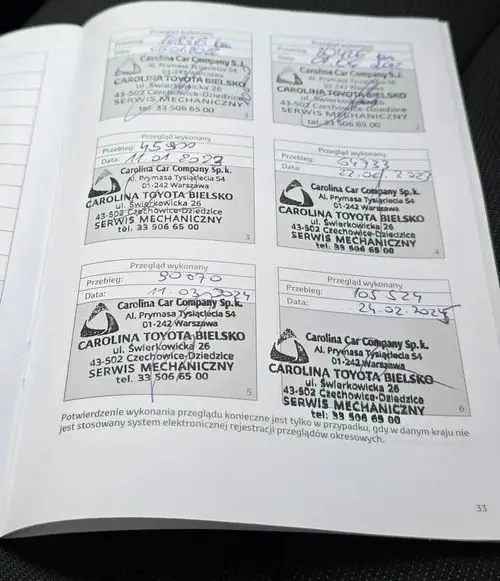 Przegląd wykonany
Przebieg:
Data:
Carolina Car Company Sp.k.
Al. Prymasa Tysiąclecia 54
01-242 Warszawa
CAROLINA TOYOTA BIELSKO
ul. Świerkowicka 26
43-502 Czechowice-Dziedzice
SERWIS MECHANICZNY
tel. 33 506 65 00
1
Przegląd wykonany
Carolina Car Company Sp.k.
Al. Prymasa Tysiąclecia 54
01-242 Warszawa
CAROLINA TOYOTA BIELSKO
ul. Świerkowicka 26
43-502 Czechowice-Dziedzice
SERWIS MECHANICZNY
tel. 33 506 65 00
2
Przegląd wykonany
Przebieg: 45900
Data: 11.01.2023
Carolina Car Company Sp.k.
Al. Prymasa Tysiąclecia 54
01-242 Warszawa
CAROLINA TOYOTA BIELSKO
ul. Świerkowicka 26
43-502 Czechowice-Dziedzice
SERWIS MECHANICZNY
tel. 33 506 65 00
3
Przegląd wykonany
Przebieg: 64733
Data: 22.06.2023
Carolina Car Company Sp.k.
Al. Prymasa Tysiąclecia 54
01-242 Warszawa
CAROLINA TOYOTA BIELSKO
ul. Świerkowicka 26
43-502 Czechowice-Dziedzice
SERWIS MECHANICZNY
tel. 33 506 65 00
4
Przegląd wykonany
Przebieg: 90070
Data: 11.03.2024
Carolina Car Company Sp.k.
Al. Prymasa Tysiąclecia 54
01-242 Warszawa
CAROLINA TOYOTA BIELSKO
ul. Świerkowicka 26
43-502 Czechowice-Dziedzice
SERWIS MECHANICZNY
tel. 33 506 65 00
5
Przegląd wykonany
Przebieg: 105524
Data: 24.02.2025
Carolina Car Company Sp.k.
Al. Prymasa Tysiąclecia 54
01-242 Warszawa
CAROLINA TOYOTA BIELSKO
ul. Świerkowicka 26
43-502 Czechowice-Dziedzice
SERWIS MECHANICZNY
tel. 33 506 65 00
6
Potwierdzenie wykonania przeglądu konieczne jest tylko w przypadku, gdy w danym kraju nie
jest stosowany system elektronicznej rejestracji przeglądów okresowych.
33